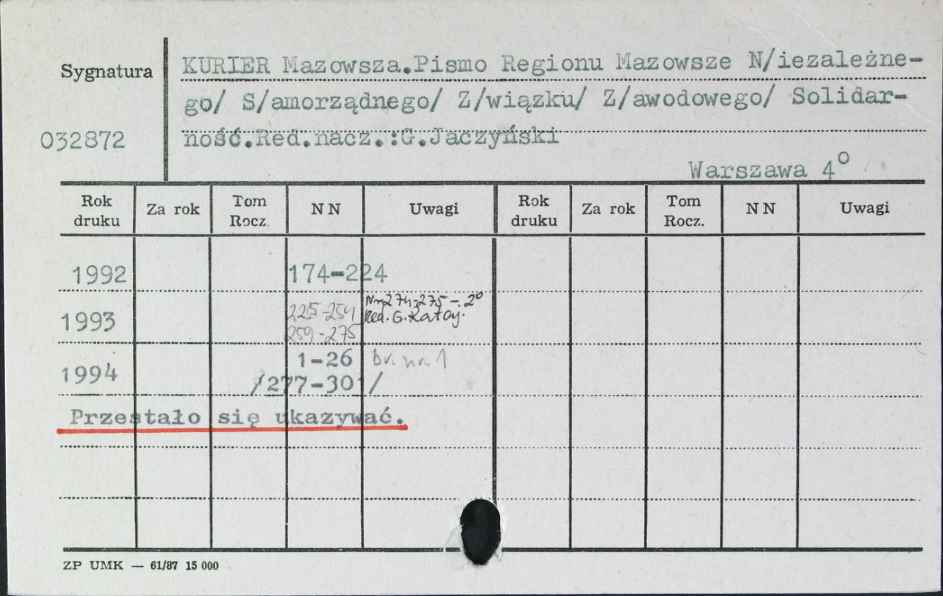 Sygnatura
KURIER Mazowsza.Pismo Regionu Mazowsze N/iezależne-
go/ S/amorządnego/ Z/wiązku/ Z/awodowego/ Solidar-
032872 ność.Red.nacz.:G.Jaczyński
Warszawa 4°
Rok druku Za rok Tom Rocz. NN Uwagi Rok druku Za rok Tom Rocz. NN Uwagi
1992 174-224
225-254 Nr 274,275 - 2°
1993 Red. G.
259-275
1-26 br. nr. 1
1994
/277-301/
Przestało się ukazywać.
ZP UMK — 61/87 15 000